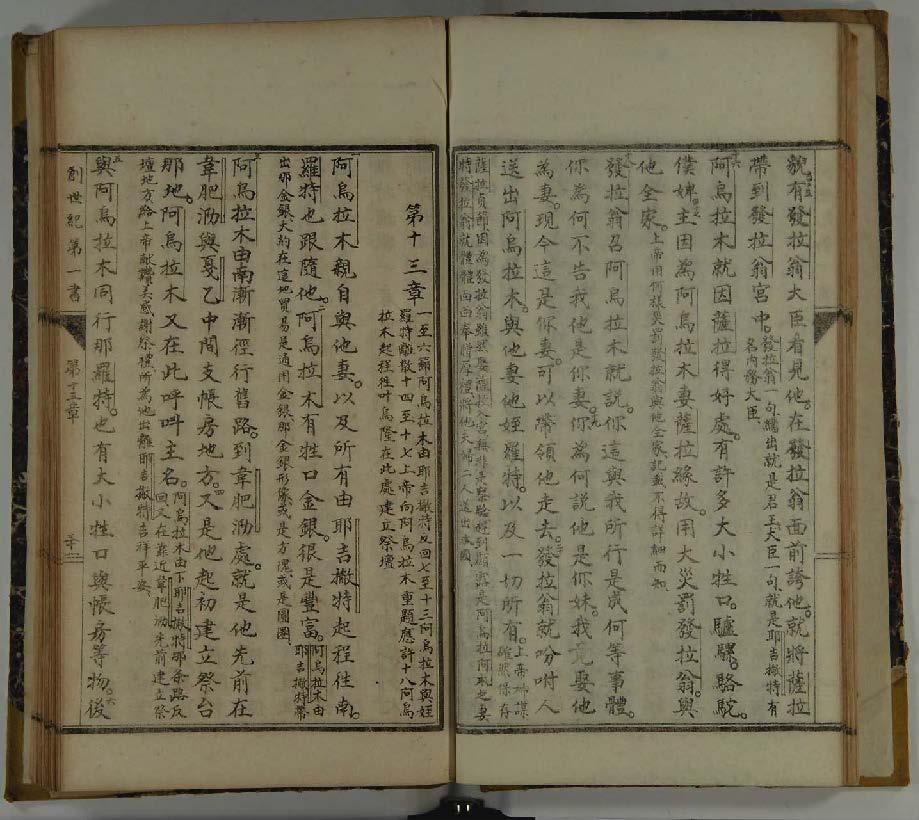 貌有發拉翁大臣有見他。在發拉翁面前誇他。就將薩拉
帶到發拉翁宮中。發拉翁一句繙出就是君王大臣一句就是耶吉撇特有
名內務大臣
阿烏拉木就因薩拉得好處有許多大小牲口。驢騾。駱駝。
僕婢主因為阿烏拉木妻薩拉緣故。用大災罰發拉翁。與
他全家。上帝用何樣災罰發拉翁與他全家記載不得詳細而知
發拉翁召阿烏拉木就說。你這與我所行是為何等事體。
你為何不告我他是你妻。你為何說他是你妹。我竟娶他
為妻。現今這是你妻。可以帶領他走去。發拉翁就吩咐人
送出阿烏拉木。與他妻他姪羅特。以及一切所有。
薩拉 因為發拉翁雖然娶薩拉入宮 阿烏拉 之妻
特發拉翁就體體面面奉贈厚禮將他夫婦二人送出本國
第十三章
一至六節阿烏拉木由耶吉撇特反回七至十三阿烏拉木與姪
羅特離散十四至十七上帝向阿烏拉木重題應許十八阿烏
拉木起程往 烏隆在此處建立祭壇
阿烏拉木親自與他妻。以及所有由耶吉撇特起程往南。
羅特也跟隨他。阿烏拉木有牲口金銀。很是豐富。阿烏拉木由
耶吉撇特帶
出那金銀大約在這地貿易是通用金銀那金銀形像或是方塊或是圓圈
阿烏拉木由南漸漸徑行舊路到韋肥泐處。就是他先前在
韋肥泐與戛乙中間支帳房地方。又是他起初建立祭台
那地。阿烏拉木又在此呼呌主名。阿烏拉木由下耶吉撇特那条路反
回又在靠近韋肥泐先前建立祭
壇地方給上帝献讚美感謝祭禮所為他出離耶吉撇特吉祥平安
與阿烏拉木同行那羅特。也有大小牲口與帳房等物。後
創世紀第一書
第十三章